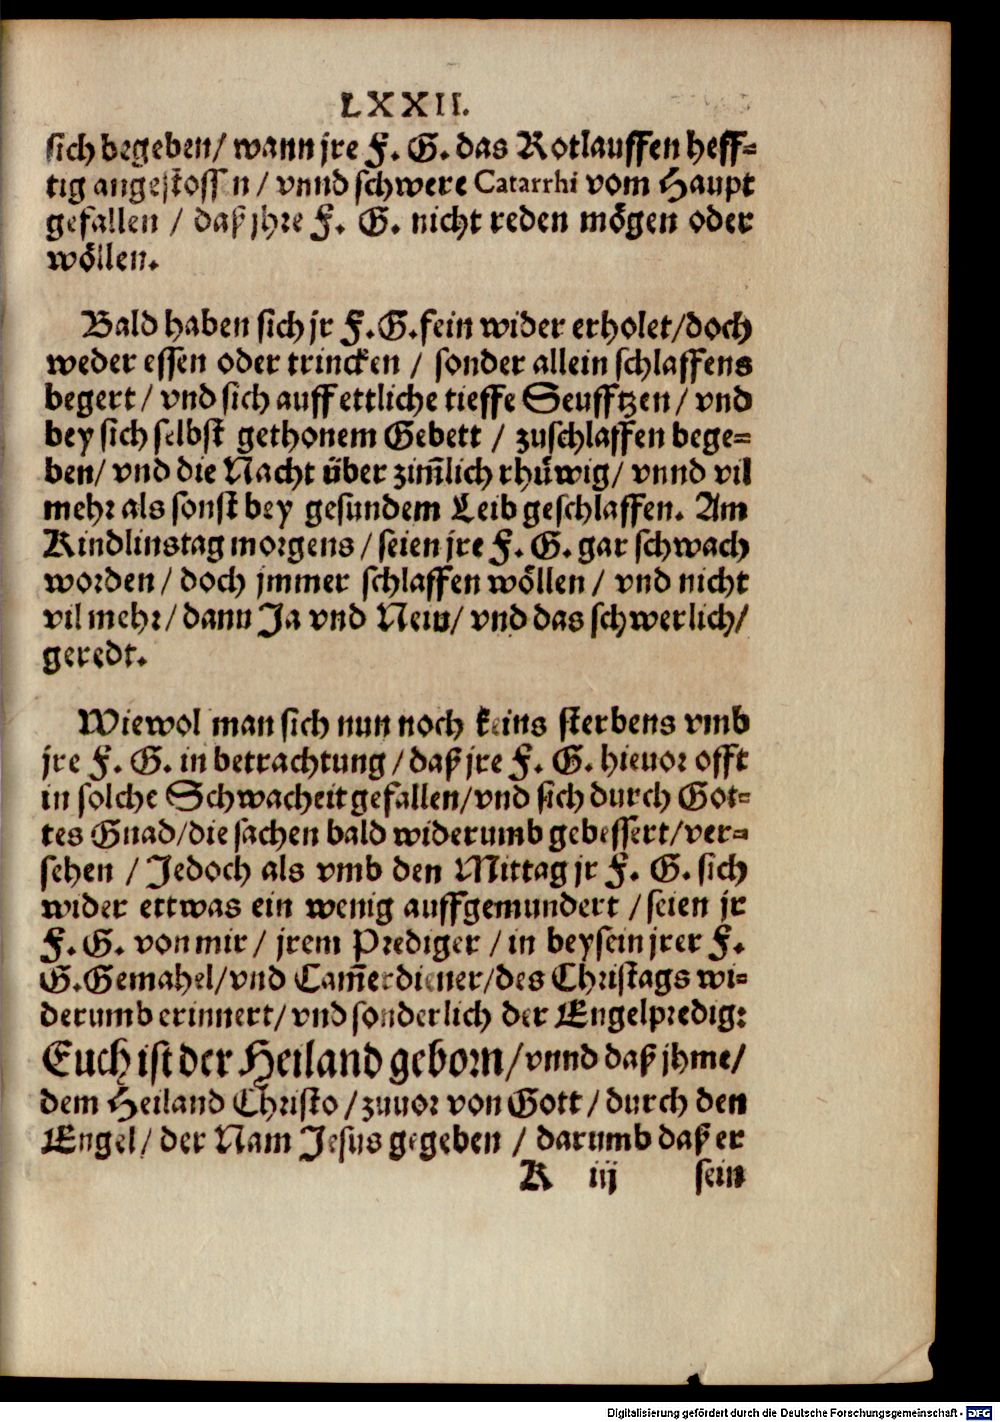 LXXII.
sich begeben/ wann jre F. G. das Rotlauffen heff-
tig angestossen / vnnd schwere Catarrhi vom Haupt
gefallen / daß jhre F. G. nicht reden mögen oder
wöllen.
Bald haben sich jr F.G.fein wider erholet/doch
weder essen oder trincken / sonder allein schlaffens
begert / vnd sich auff ettliche tieffe Seufftzen / vnd
bey sich selbst gethonem Gebett / zuschlaffen bege-
ben/ vnd die Nacht über zim̃lich rhüwig/ vnnd vil
mehr als sonst bey gesundem Leib geschlaffen. Am
Kindlinstag morgens / seien jre F. G. gar schwach
worden / doch jmmer schlaffen wöllen / vnd nicht
vil mehr / dann Ja vnd Nein/ vnd das schwerlich/
geredt.
Wiewol man sich nun noch keins sterbens vmb
jre F. G. in betrachtung / daß jre F. G. hieuor offt
in solche Schwacheit gefallen/vnd sich durch Got-
tes Gnad/die sachen bald widerumb gebessert/ver-
sehen / Jedoch als vmb den Mittag jr F. G. sich
wider ettwas ein wenig auffgemundert / seien jr
F. G. von mir / jrem Prediger / in beysein jrer F.
G.Gemahel/vnd Cam̃erdiener/des Christags wi-
derumb erinnert/ vnd sonderlich der Engelpredig:
Euch ist der Heiland geborn/vnnd daß jhme/
dem Heiland Christo / zuuor von Gott / durch den
Engel/ der Nam Jesus gegeben / darumb daß er
K iij sein
Digitalisierung gefördert durch die Deutsche Forschungsgemeinschaft - DFG